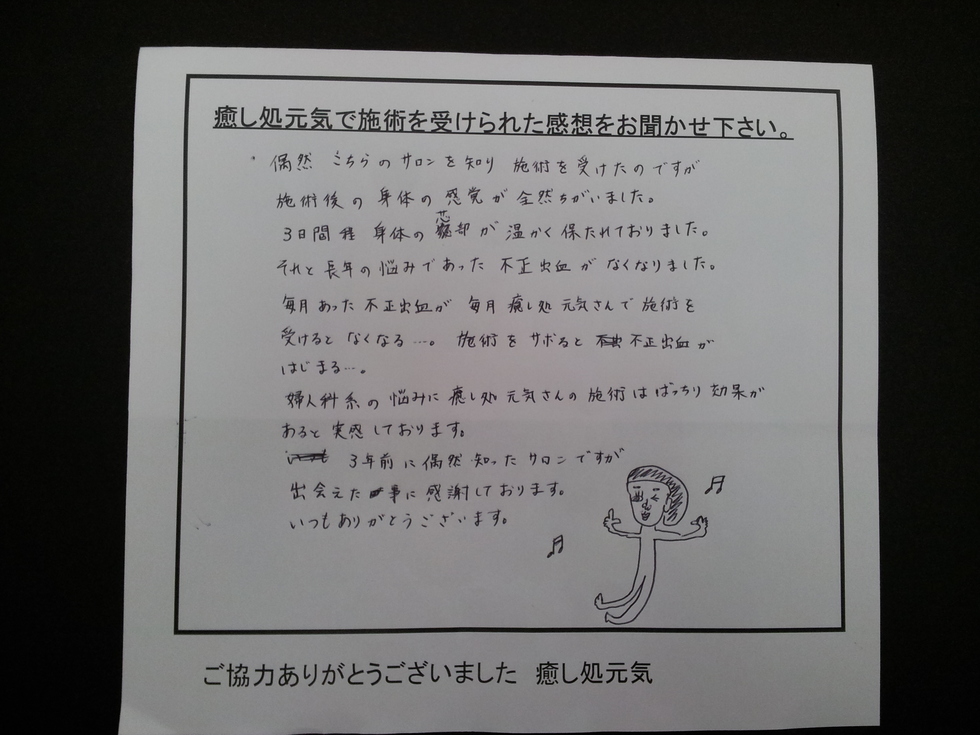 癒し処元気で施術を受けられた感想をお聞かせ下さい。
・偶然 こちらのサロンを知り 施術を受けたのですが
施術後の身体の感覚が全然ちがいました。
3日間程 身体の芯部が温かく保たれておりました。
それと長年の悩みであった不正出血がなくなりました。
毎月あった不正出血が毎月癒し処元気さんで施術を
受けるとなくなる…。施術をサボると不正出血が
はじまる…。
婦人科系の悩みに癒し処元気さんの施術はばっちり効果が
あると実感しております。
3年前に偶然知ったサロンですが
出会えた事に感謝しております。
いつもありがとうございます。
ご協力ありがとうございました 癒し処元気